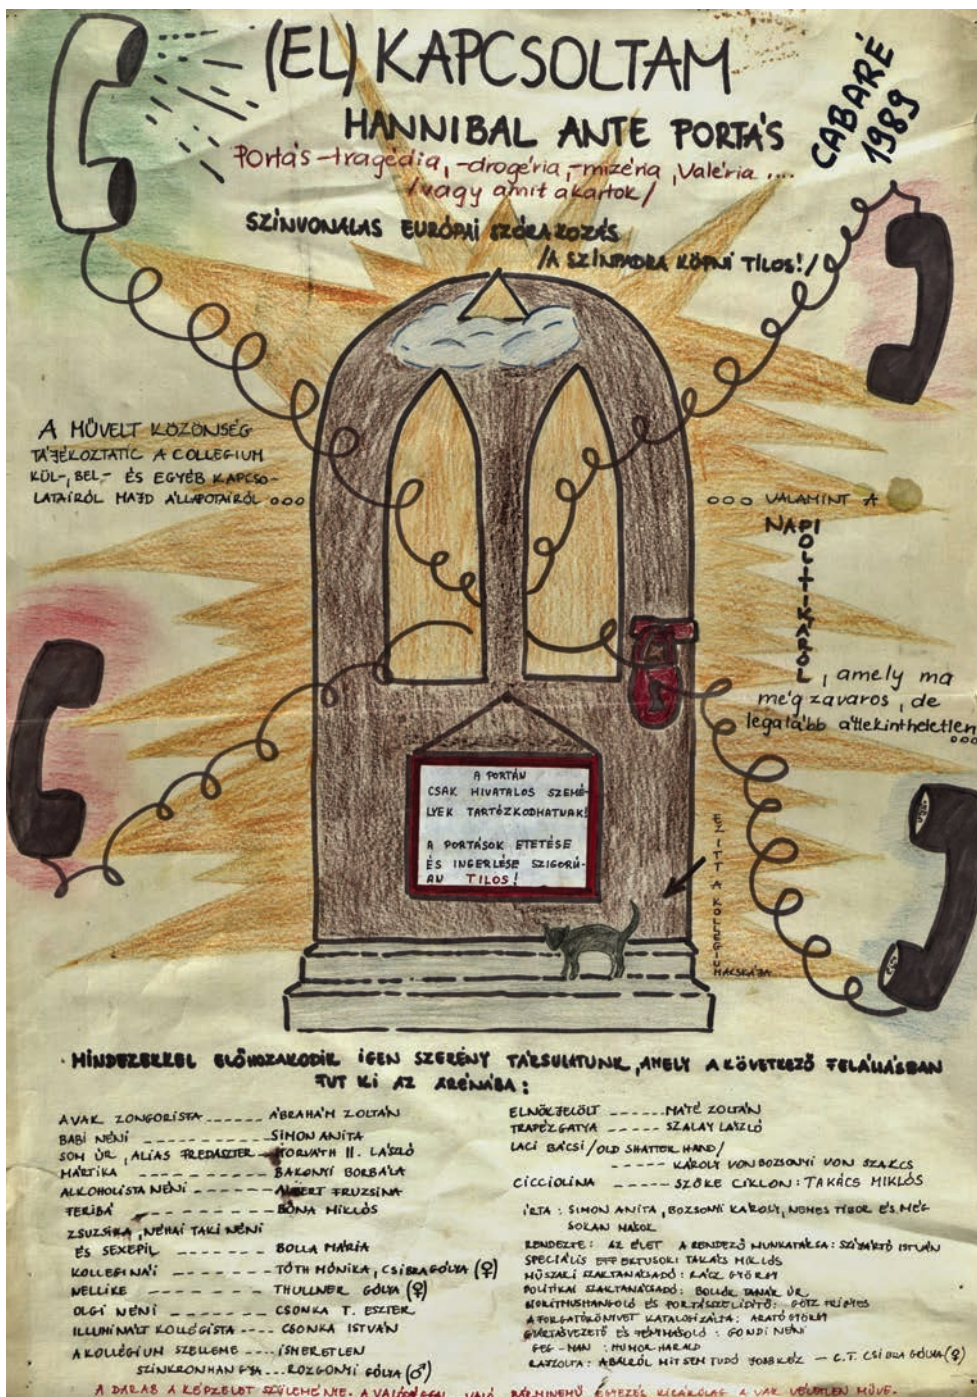 (EL) KAPCSOLTAM
HANNIBAL ANTE PORTÁS
CABARÉ
1989
Portás-tragédia, -drogéria, -mizéria, Valéria ....
/vagy amit akartok/
SZÍNVONALAS EURÓPAI SZÓRAKOZÁS
/A SZÍNPADRA KÖPNI TILOS!/
A MŰVELT KÖZÖNSÉG
TÁJÉKOZTATIC A COLLEGIUM
KÜL-, BEL- ÉS EGYÉB KAPCSO-
LATAIRÓL MAJD ÁLLAPOTAIRÓL ...
... VALAMINT A
NAPI
POLITIKÁRÓL
, amely ma
még zavaros, de
legalább áttekinthetetlen
...
A PORTÁN
CSAK HIVATALOS SZEMÉ-
LYEK TARTÓZKODHATNAK!
A PORTÁSOK ETETÉSE
ÉS INGERLÉSE SZIGORÚ-
AN TILOS!
EZ ITT A KOLLÉGIUM
MACSKÁJA
MINDEZEKKEL ELŐHOZAKODIK IGEN SZERÉNY TÁRSULATUNK, AMELY A KÖVETKEZŐ FELÁLLÁSBAN
FUT KI AZ ARÉNÁBA:
A VAK ZONGORISTA ------ ÁBRAHÁM ZOLTÁN
BABI NÉNI --------- SIMON ANITA
SOM ÚR, ALIAS FREDASZTER - HORVÁTH II. LÁSZLÓ
MÁRTIKA -------- BAKONYI BORBÁLA
ALKOHOLISTA NÉNI ------- ALBERT FRUZSINA
FERIBÁ -------- BÓNA MIKLÓS
ZSUZSIKA, NÉHAI TAKI NÉNI
ÉS SEXEPIL ------- BOLLA MÁRIA
KOLLEGINÁI ------ TÓTH MÓNIKA, CSIBRA GÓLYA (♀)
NELLIKE ------- THULLNER GÓLYA (♀)
OLGI NÉNI ------- CSONKA T. ESZTER
ILLUMINÁLT KOLLÉGISTA ---- CSONKA ISTVÁN
A KOLLÉGIUM SZELLEME --- ISMERETLEN
SZINKRONHANGJA ... ROZGONYI GÓLYA (♂)
ELNÖKJELÖLT ------ MÁTÉ ZOLTÁN
TRAPÉZGATYA ----- SZALAY LÁSZLÓ
LACI BÁCSI /OLD SHATTER HAND/
----- KÁROLY VON BOZSONYI VON SZAKCS
CICCIOLINA ----- SZŐKE CIKLON: TAKÁCS MIKLÓS
ÍRTA: SIMON ANITA, BOZSONYI KÁROLY, NEMES TIBOR ÉS MÉG
SOKAN MÁSOK
RENDEZTE: AZ ÉLET A RENDEZŐ MUNKATÁRSA: SZIJÁRTÓ ISTVÁN
SPECIÁLIS EFFEKTUSOK: TAKÁCS MIKLÓS
MŰSZAKI SZAKTANÁCSADÓ: RÁCZ GYÖRGY
POLITIKAI SZAKTANÁCSADÓ: BOLLÓK TANÁR ÚR
BIORITMUSHANGOLÓ ÉS PORTÁSSZELÍDÍTŐ: GÖTZ
A FORGATÓKÖNYVET KATALOGIZÁLTA: ARATÓ GYÖRGY
GYÁRTÁSVEZETŐ ÉS FÉNYMÁSOLÓ: GONDI NÉNI
GEG-MAN: HUMOR HARALD
RAJZOLTA: A BALRÓL MIT SEM TUDÓ JOBB KÉZ - C.T. CSIBRA GÓLYA (♀)
A DARAB A KÉPZELET SZÜLEMÉNYE. A VALÓSÁGGAL VALÓ BÁRMINEMŰ EGYEZÉS KIZÁRÓLAG A VAK VÉLETLEN MŰVE.